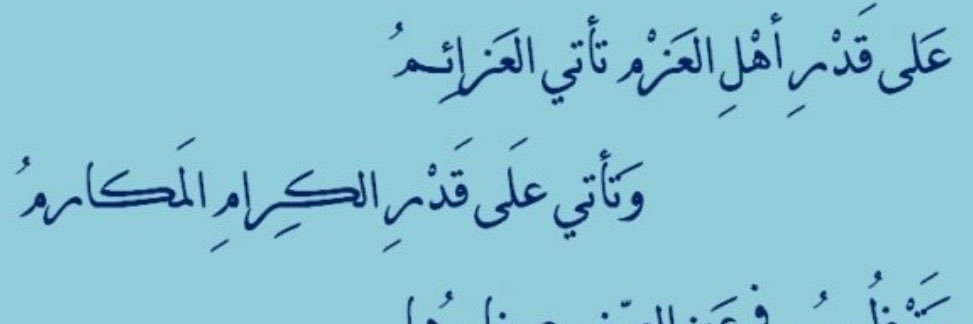 عَلى قَدْرِ أهْلِ العَزْمِ تأتي العَزائِمُ
وَتأتي علَى قَدْرِ الكِرامِ المَكارمُ